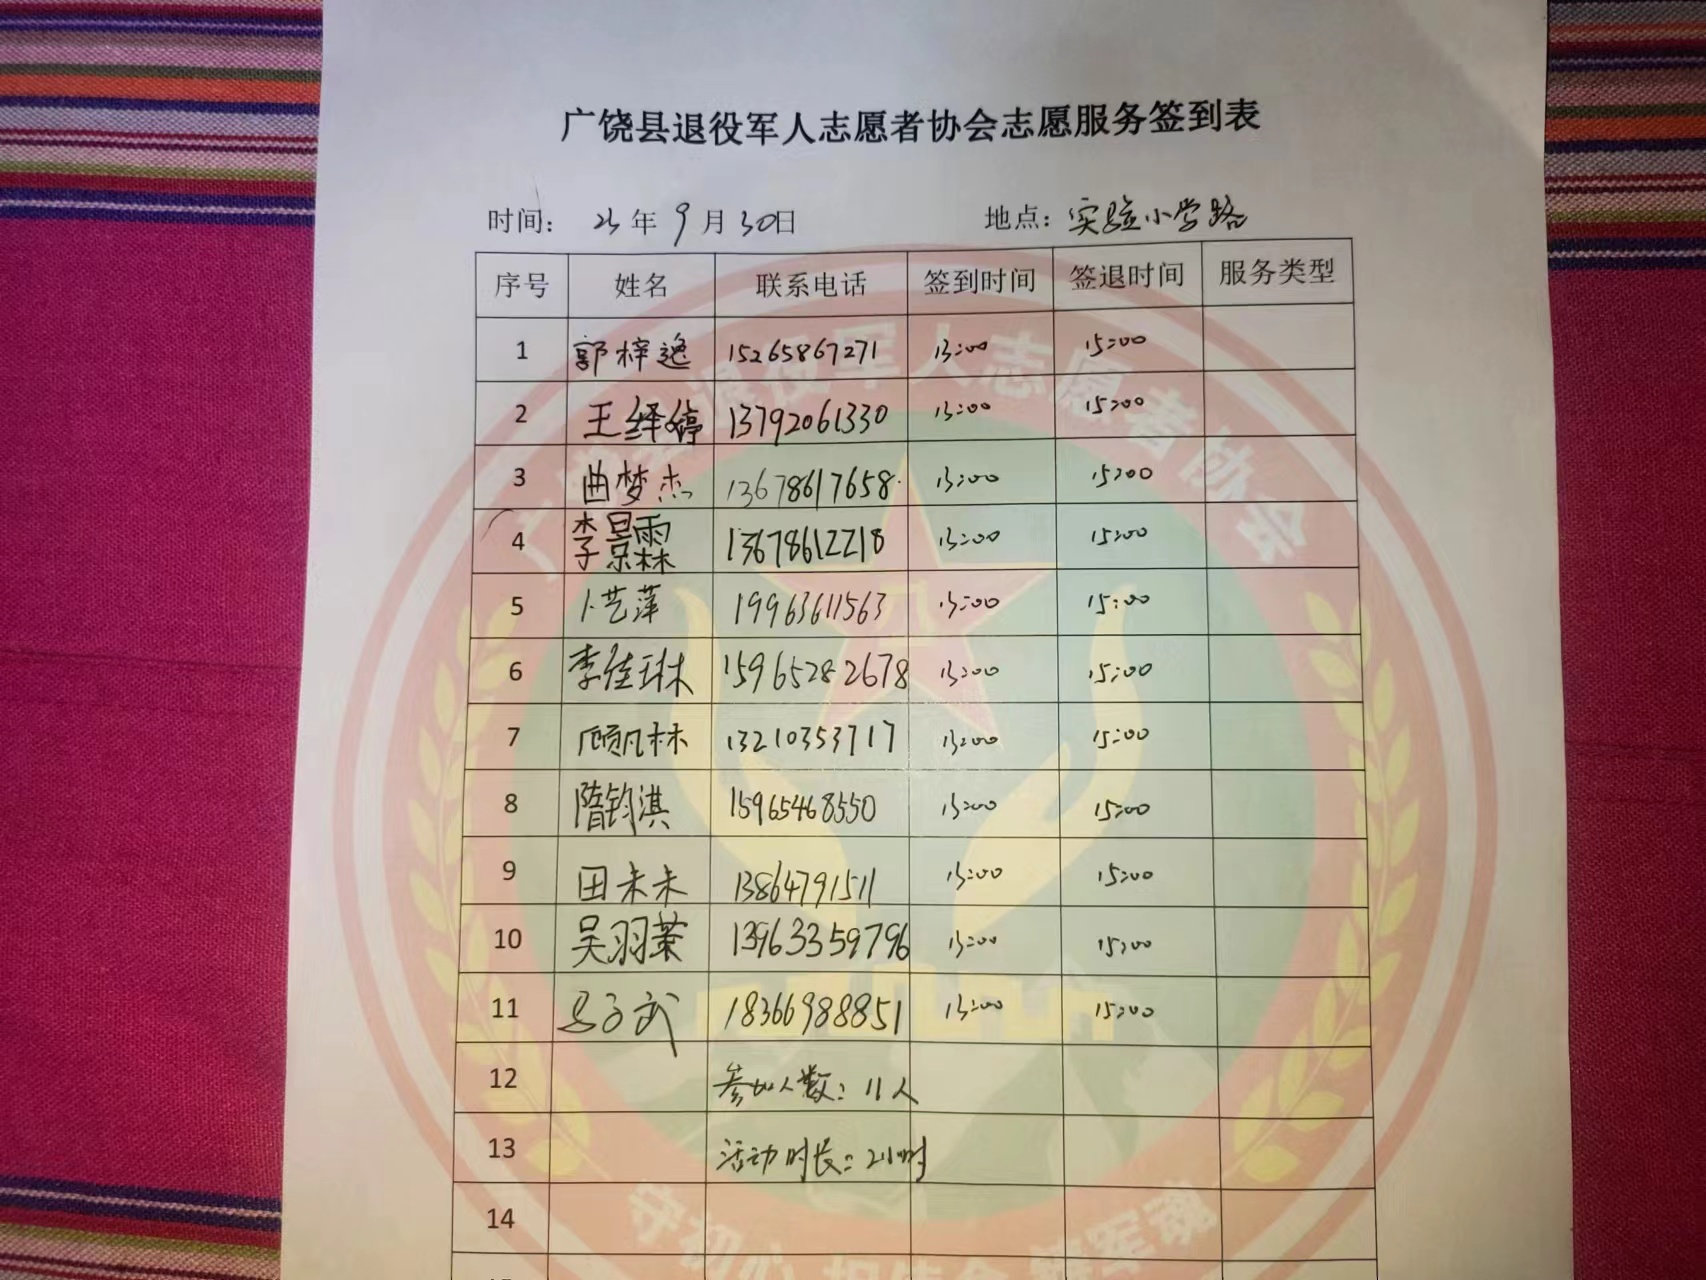 广饶县退役军人志愿者协会志愿服务签到表
时间: 25年9月30日 地点: 实验小学路
序号 姓名 联系电话 签到时间 签退时间 服务类型
1 郭梓逸 15265867271 13:00 15:00
2 王绎婷 13792061330 13:00 15:00
3 曲梦杰 13678617658 13:00 15:00
4 李景霖 13678612218 13:00 15:00
5 卜艺萍 19963611563 13:00 15:00
6 李佳琳 15965282678 13:00 15:00
7 顾凡林 13210353717 13:00 15:00
8 隋钧淇 15965468550 13:00 15:00
9 田未未 13864791511 13:00 15:00
10 吴羽茉 13963359796 13:00 15:00
11 马子武 18366988851 13:00 15:00
12 参加人数: 11人
13 活动时长: 2小时
14
退役军人志愿者协会
守初心 担使命 铸军魂